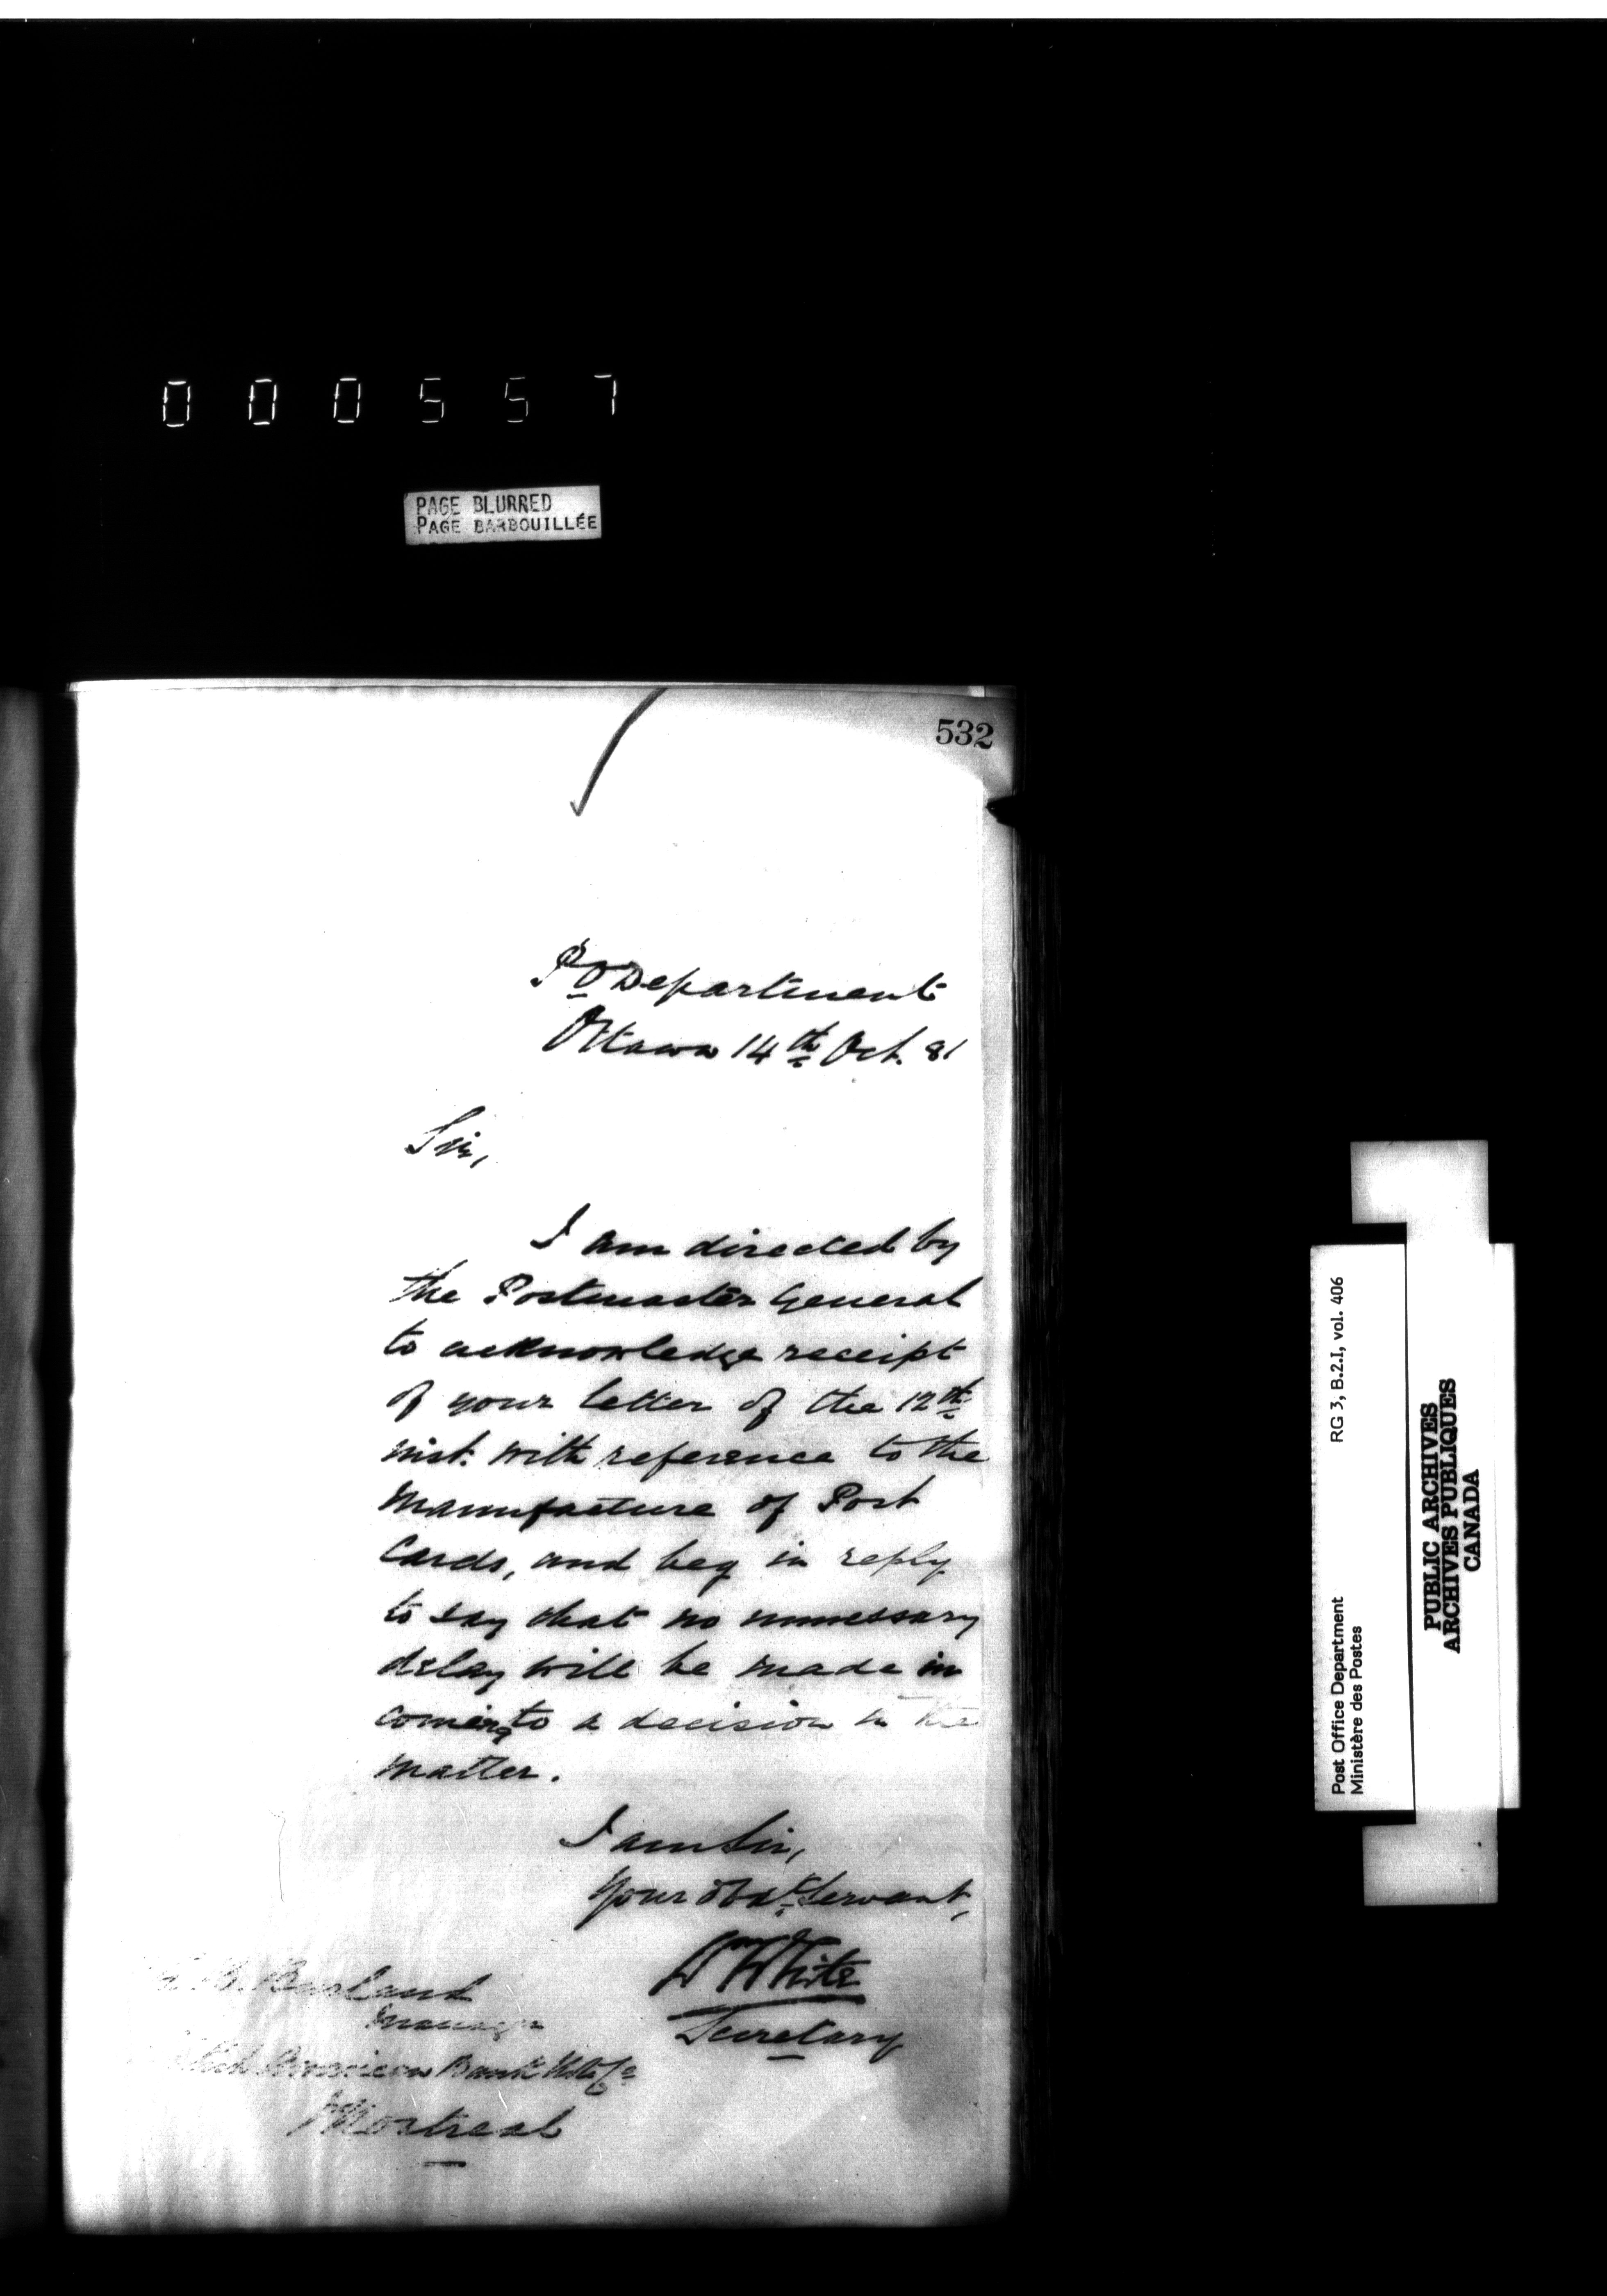 000557
PAGE BLURRED
PAGE BARBOUILLÉE
532
P O Department
Ottawa 14th Oct. 81
Sir,
I am directed by
the Postmaster General
to acknowledge receipt
of your letter of the 12th
inst. with reference to the
Manufacture of Post
Cards, and beg in reply
to say that no unnessary
delay will be made in
coming to a decision in the
matter.
I am Sir,
Your Obdt. Servant,
Wm White
Secretary
B. Burland
Manager
American Bank Note Co
Montreal
Post Office Department RG 3, B.2.I, vol. 406
Ministère des Postes
PUBLIC ARCHIVES
ARCHIVES PUBLIQUES
CANADA